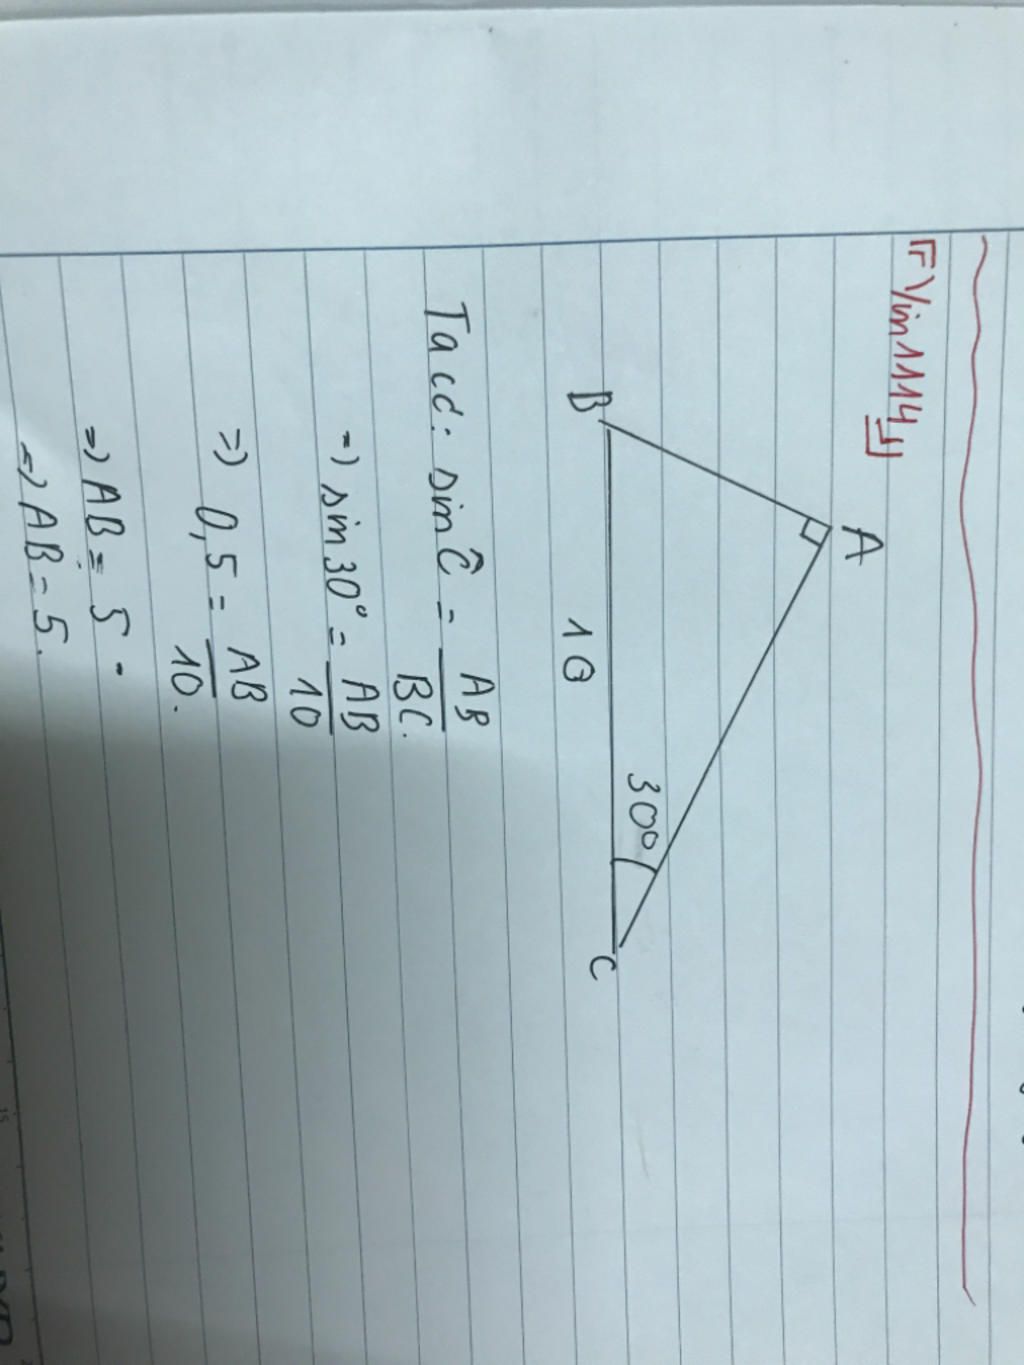 『Vin1114』
A
B
10
30°
C
Ta có: sin Ĉ = AB/BC.
=) sin 30° = AB/10
=) 0,5 = AB/10.
=) AB = 5.
=) AB = 5.